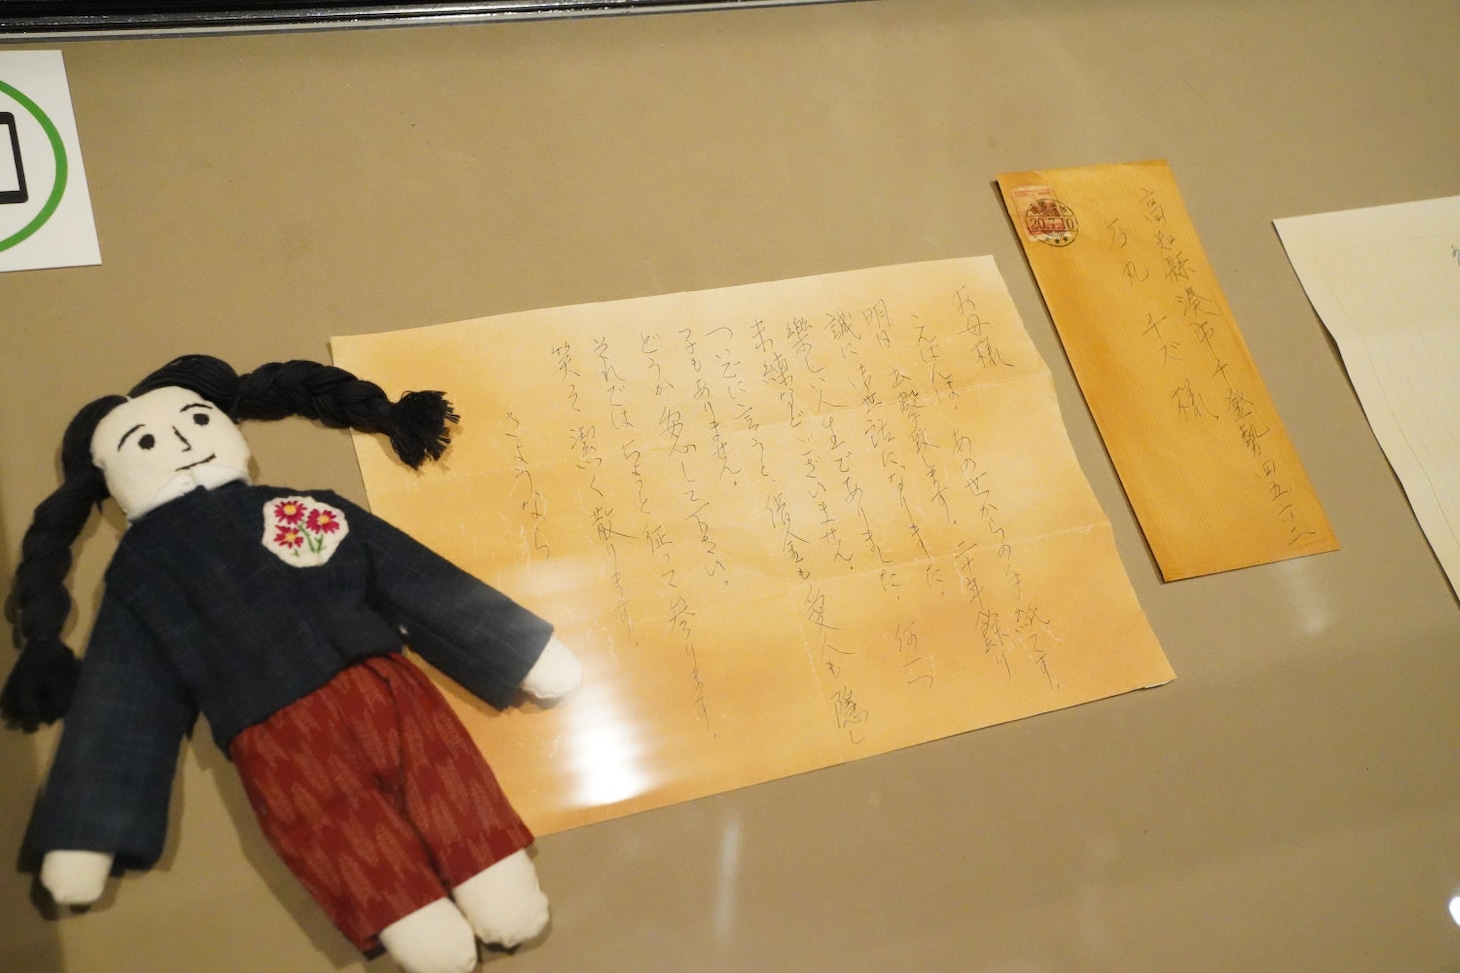 お母様
こんばんは。あの世からの手紙です。
明日 出撃致します。二十年餘り
誠にお世話になりました。何一つ
樂しい人生でありました。
未練などございません。
ついでに言うと、借金も愛人も隠し
子もありません。
どうか安心して下さい。
それでは ちょっと征って参ります。
笑って潔く散ります。
さようなら
高知縣湊市千登勢四五一ノ二
石丸 チズ 様
20.7.10